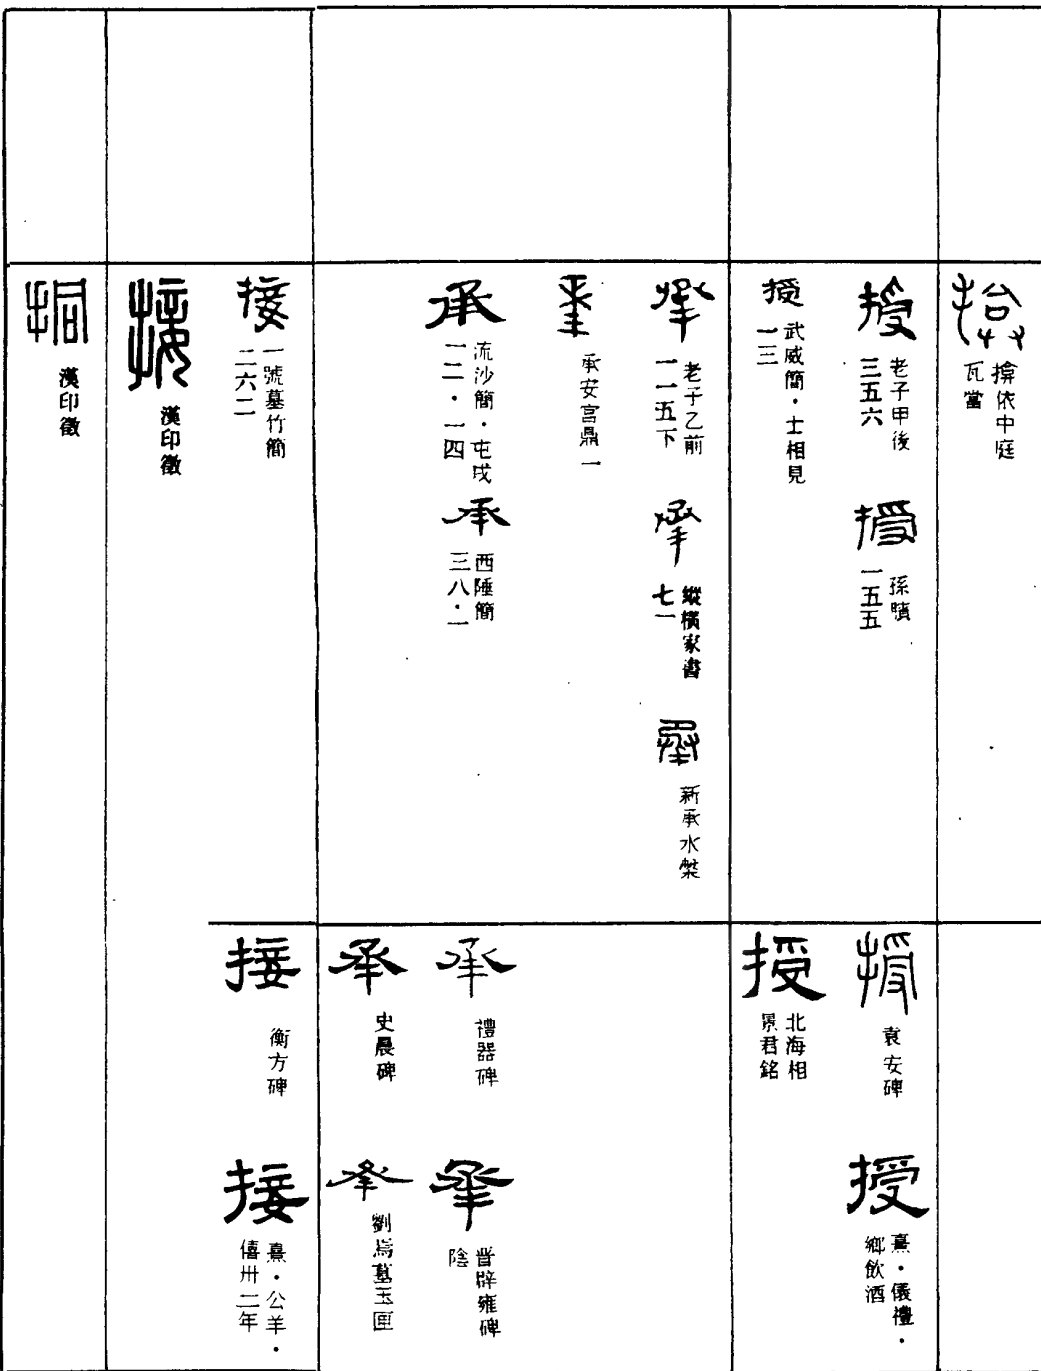 揜依中庭
瓦當
授
老子甲後
三五六
授
孫臏
一五五
授
武威簡·士相見
一三
承
老子乙前
一一五下
承
縱橫家書
七一
承
新承水槃
承
承安宮鼎一
承
流沙簡·屯戍
一二·一四
承
西陲簡
三八·一
接
一號墓竹簡
二六二
接
漢印徵
挏
漢印徵
授
袁安碑
授
熹·儀禮·
鄉飲酒
授
北海相
景君銘
承
禮器碑
承
晉辟雍碑
陰
承
史晨碑
承
劉焉墓玉匣
接
衡方碑
接
熹·公羊·
僖卅二年